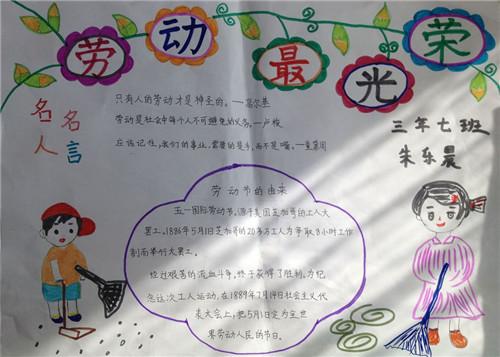 劳动最光荣
名人名言
只有人的劳动才是神圣的。——高尔基
劳动是社会中每个人不可避免的义务。—卢梭
应该记住,我们的事业,需要的是手,而不是嘴。—童第周
三年七班
朱乐晨
劳动节的由来
五一国际劳动节,源于美国芝加哥的工人大
罢工。1886年5月1日芝加哥的20多万工人为争取8小时工作
制而举行大罢工。
经过艰苦的流血斗争,终于获得了胜利。为纪
念这次工人运动,在1889年7月14日社会主义代
表大会上,把5月1日定为全世
界劳动人民的节日。